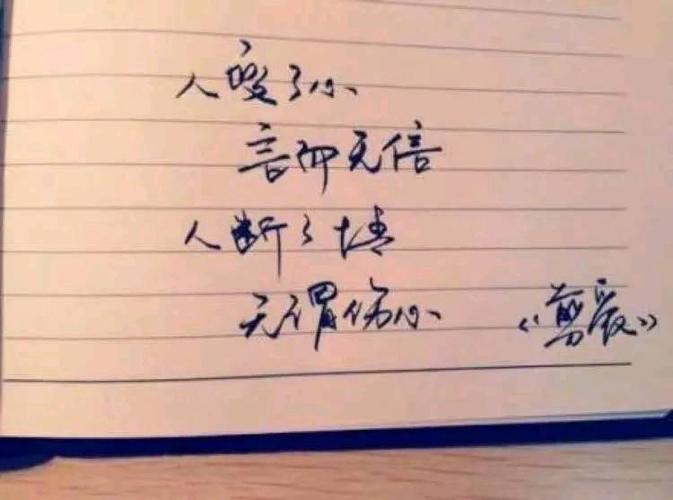 人变了心
言而无信
人断了情
无谓伤心 《剪爱》